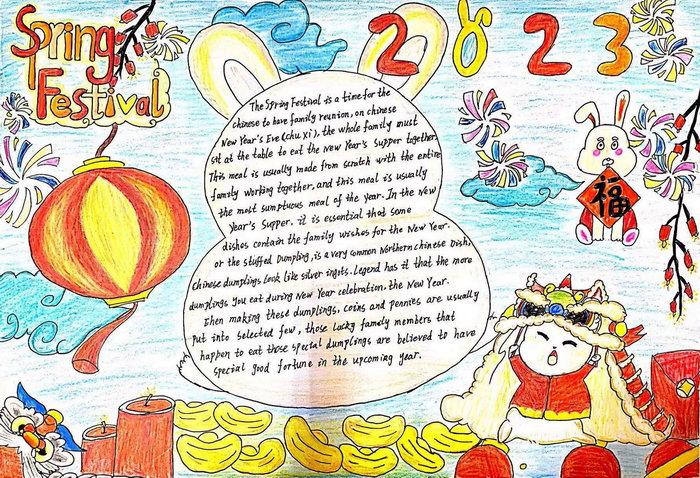 Spring
Festival
2023
The Spring Festival is a time for the
chinese to have family reunion, on chinese
New Year's Eve (chu xi), the whole family must
sit at the table to eat the New Year's supper together.
This meal is usually made from scratch with the entire
family working together, and this meal is usually
the most sumptuous meal of the year. In the New
Year's Supper. it is essential that some
dishes contain the family wishes for the New Year.
or the stuffed Dumpling, is a very common Northern chinese Dish,
Chinese dumplings look like silver ingots. Legend has it that the more
dumplings You eat during New Year celebration. the New Year.
Ehen making these dumplings, coins and pennies are usually
Put into selected few, those lucky family members that
happen to eat those special dumplings are believed to have
special good fortune in the upcoming year.
福